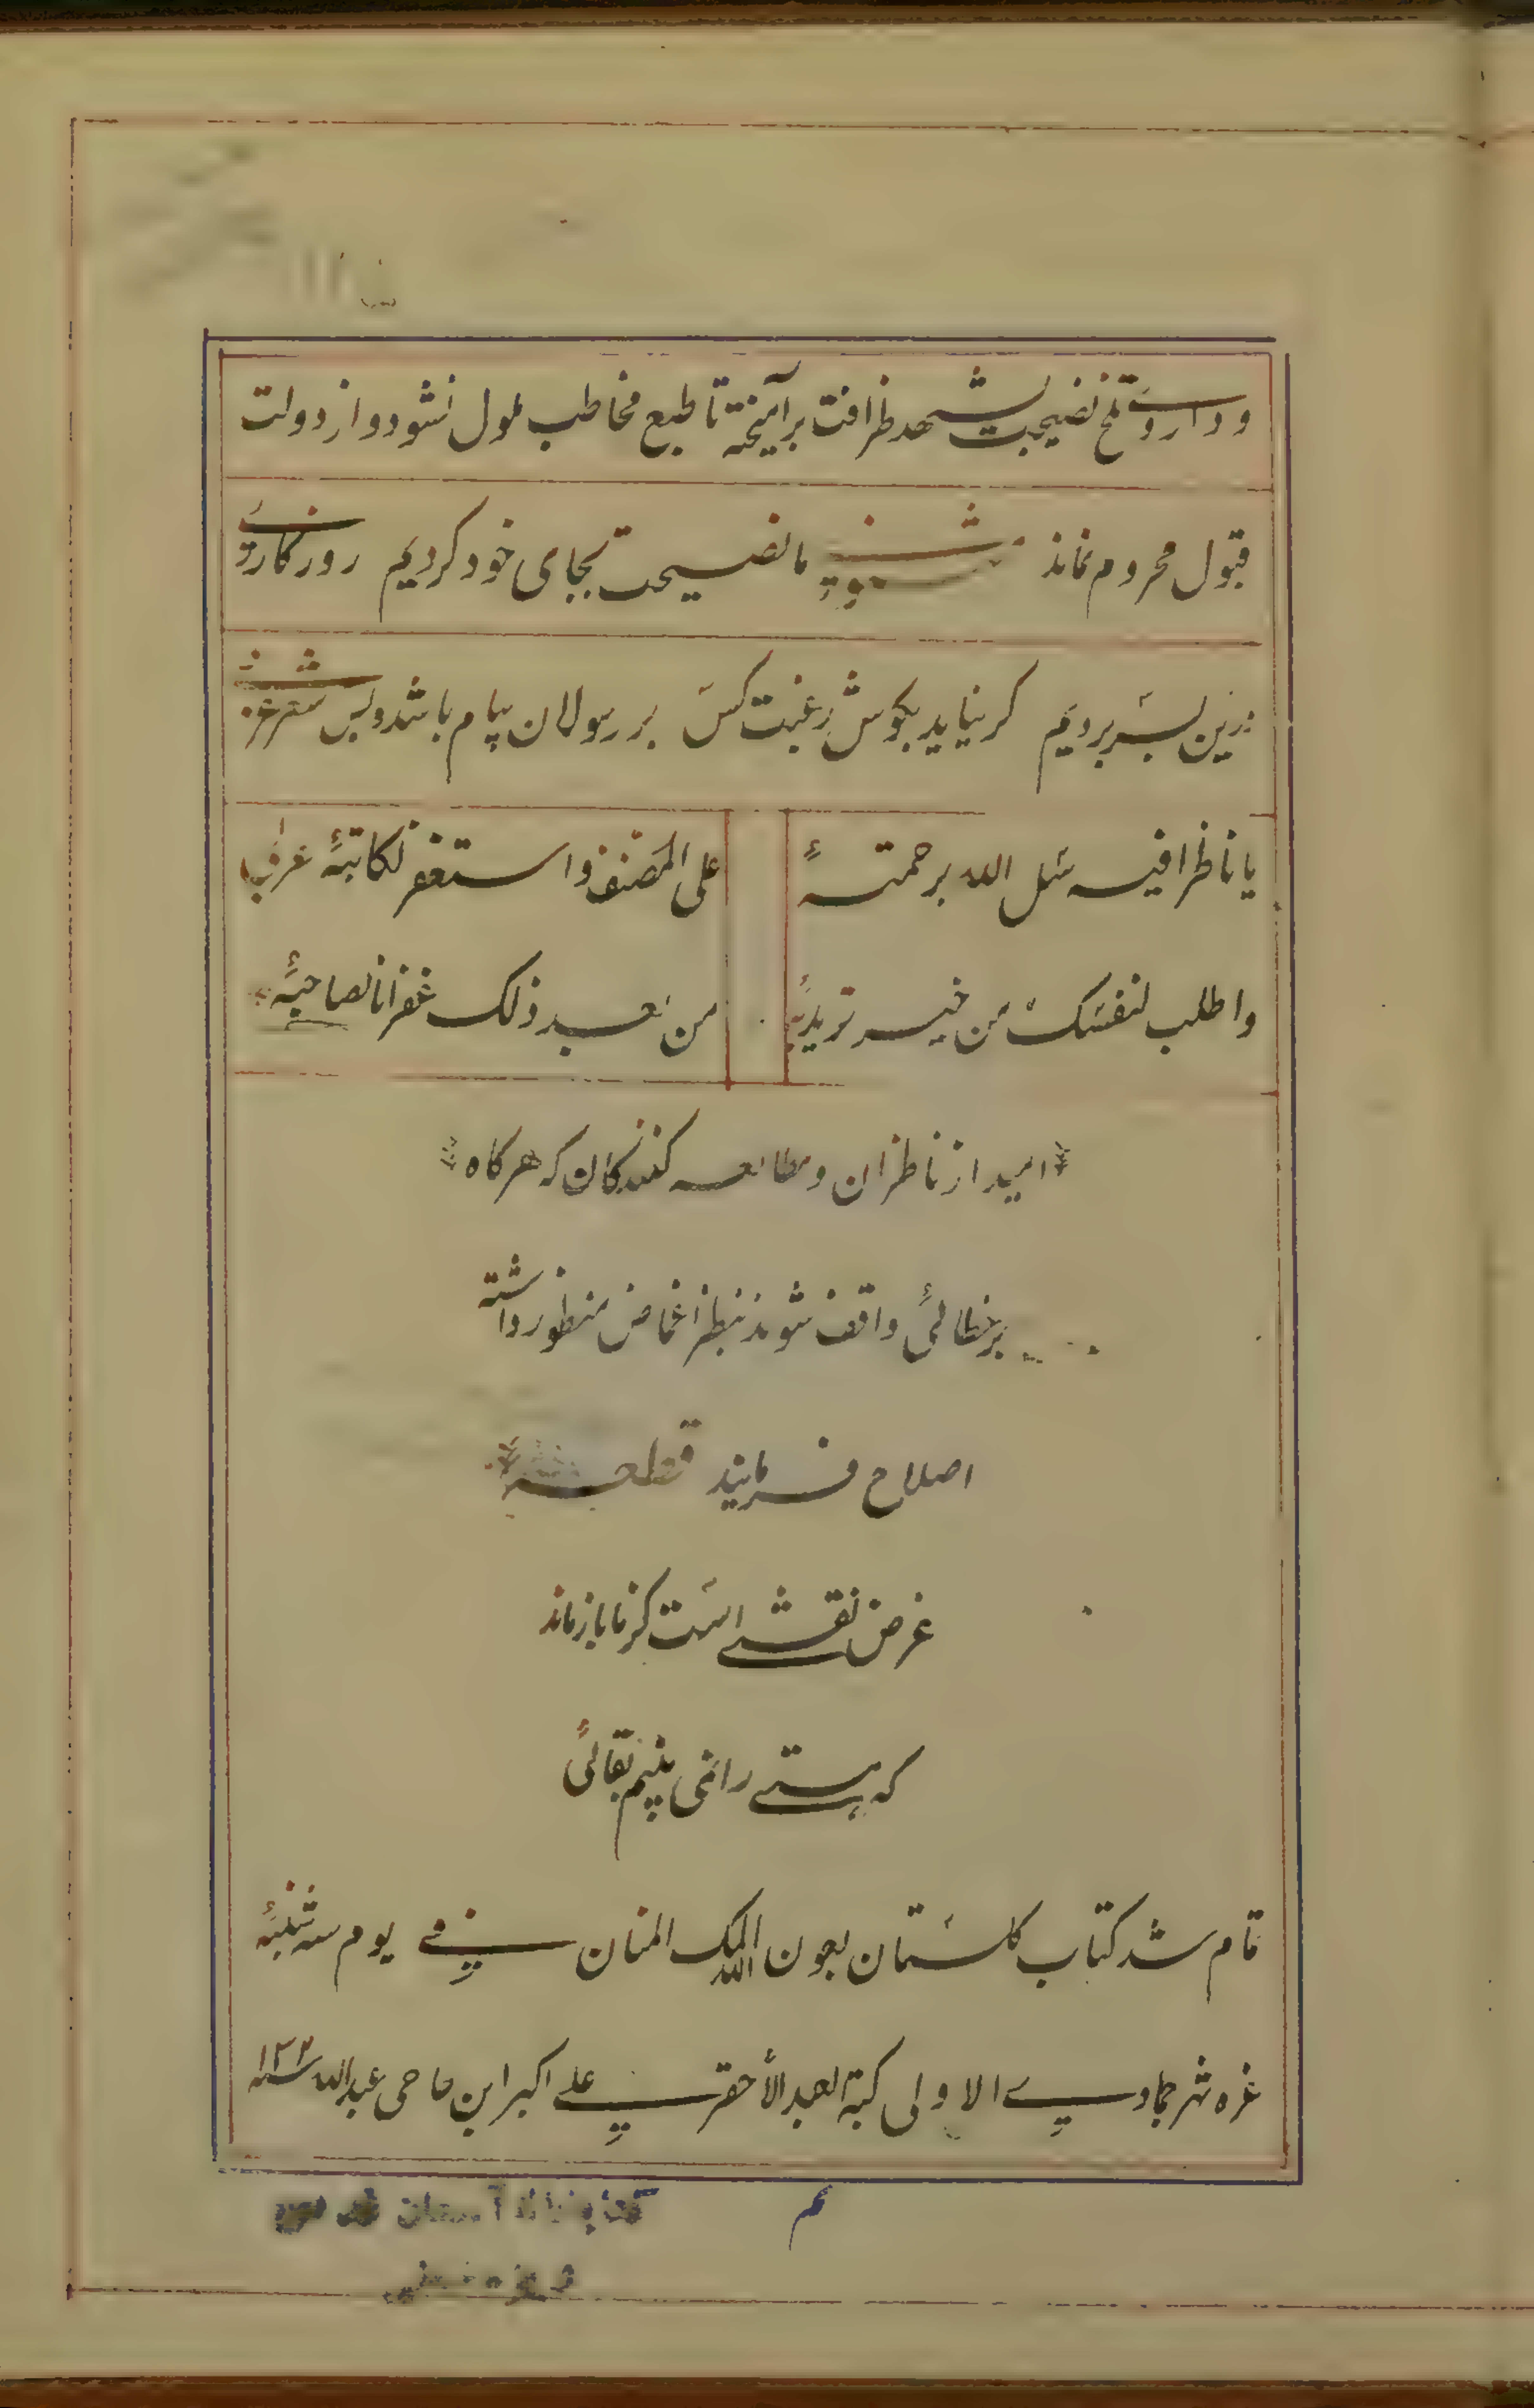 و داروی تلخ نصیحت بشهد ظرافت برآمیخته تا طبع مخاطب ملول نشود و از دولت
قبول محروم نماند مثنوی ما نصیحت بجای خود کردیم روزکاری
درین بسر بردیم کر نیاید بکوش رغبت کس بر رسولان پیام باشد و بس شعر عربی
یا ناظرا فیه سل الله برحمته علی المصنف واستغفر لکاتبه
واطلب لنفسک من خیر ترید به من بعد ذلک غفرانا لصاحبه
امید از ناظران و مطالعه کنندکان که هرکاه
برخطائی واقف شوند بنظر اغماض منظور داشته
اصلاح فرمایند قطعه
غرض نقشی است کز ما باز ماند
که هستی را نمی بینم بقائی
تمام شد کتاب کلستان بعون الملک الله المنان فی یوم سه شنبه
غره شهر جمادی الاولی کتبه العبد الأحقر علی اکبر ابن حاجی عبدالله
کتابخانه آستان قدس